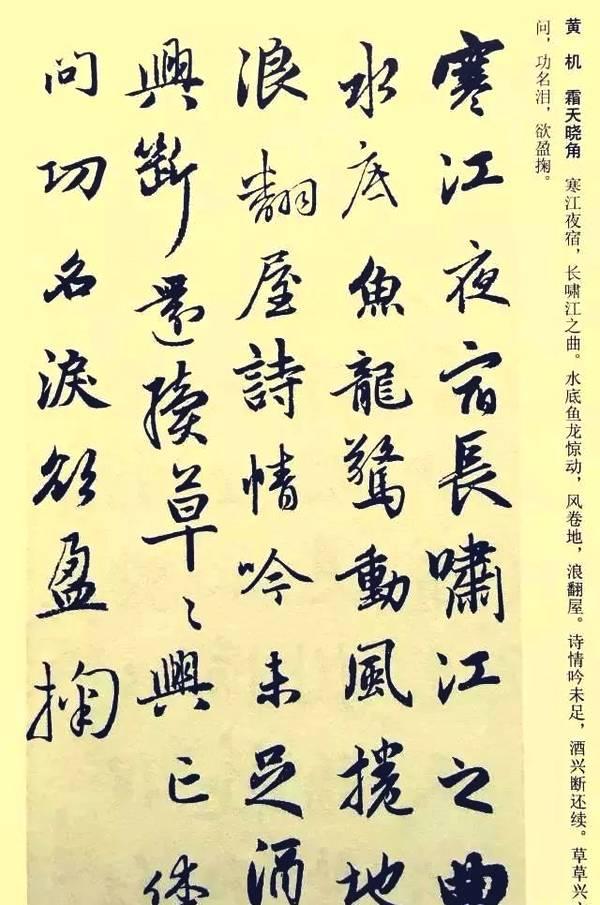 黄 机 霜天晓角 寒江夜宿，长啸江之曲。水底鱼龙惊动，风卷地，浪翻屋。诗情吟未足，酒兴断还续。草草兴
问，功名泪，欲盈掬。
寒江夜宿長嘯江之曲
水底魚龍驚動風捲地
浪翻屋詩情吟未足酒
興斷還續草〻興亡休
問功名淚欲盈掬